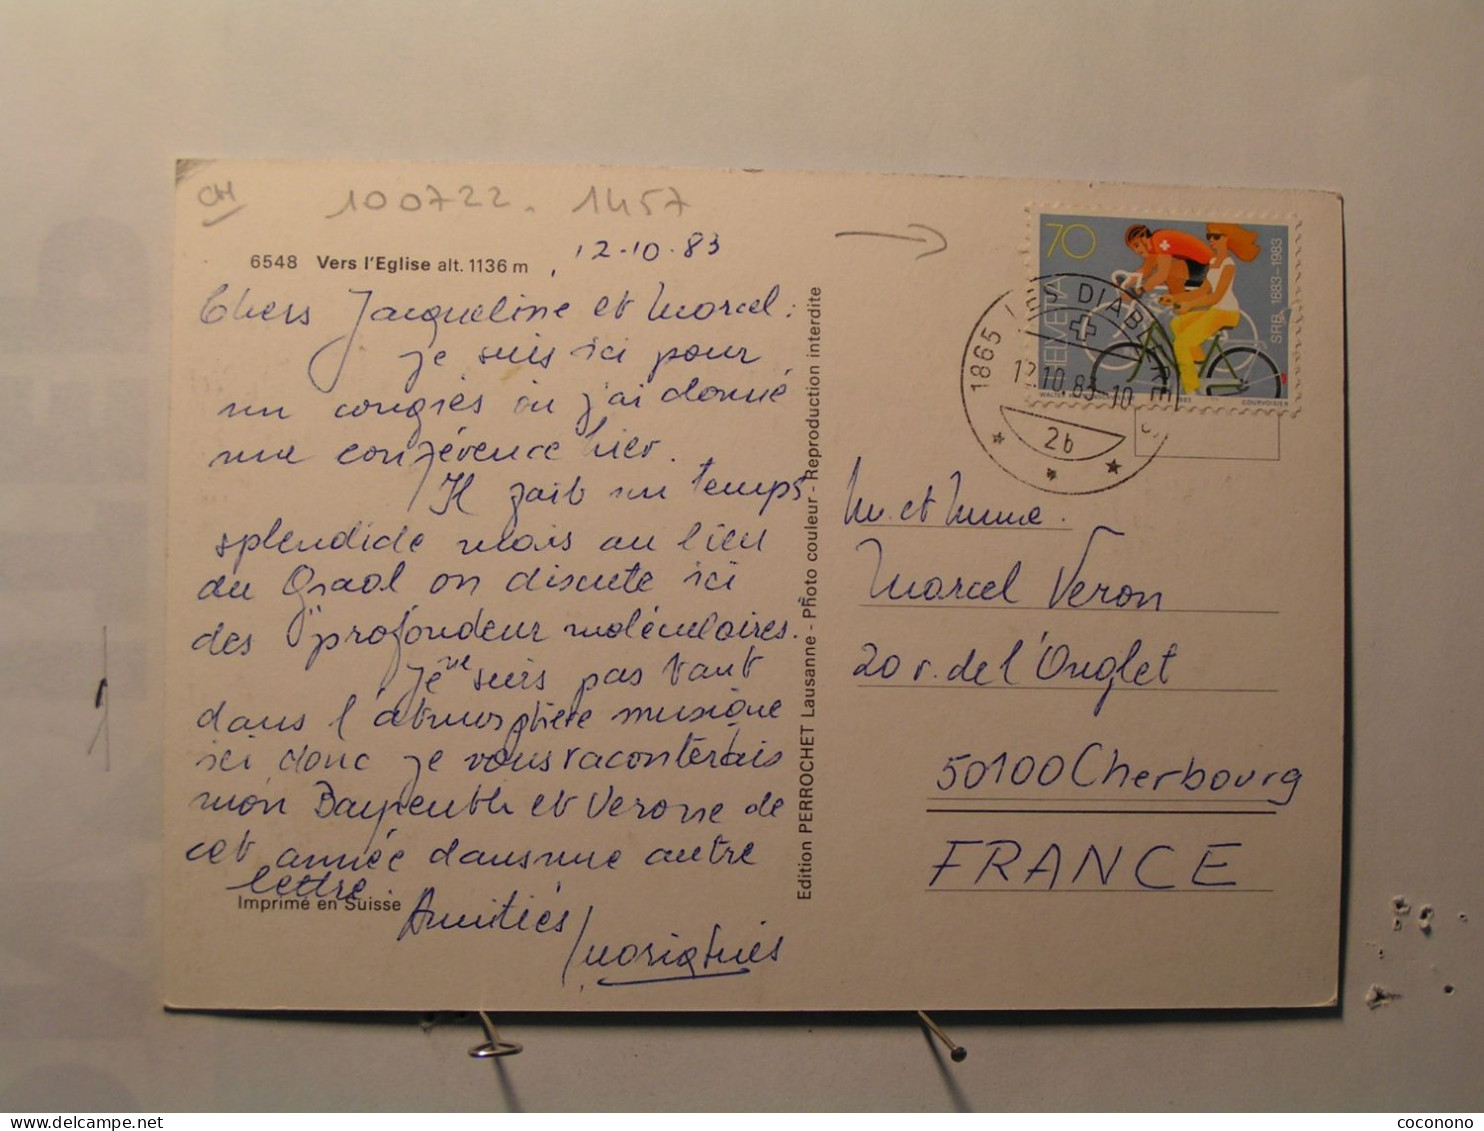 CH
100722. 1457
6548 Vers l'Eglise alt. 1136 m
12-10-83
Chers Jacqueline et Marcel:
je suis ici pour
un congrès où j'ai donné
une conférence hier.
Il fait un temps
splendide mais au lieu
du Graal on discute ici
des "profondeur moléculaires.
Je ne suis pas tant
dans l'atmosphère musique
ici donc je vous raconterais
mon Bayreuth et Verone de
cet année dans une autre
lettre
Imprimé en Suisse
Amitiés
Edition PERROCHET Lausanne - Photo couleur - Reproduction interdite
70
HELVETIA
SRB 1883-1983
COURVOISIER
1865 LES DIABLERETS
12.10.83-10
2b
M. et Mme.
Marcel Veron
20 r. de l'Onglet
50100 Cherbourg
FRANCE
coconono